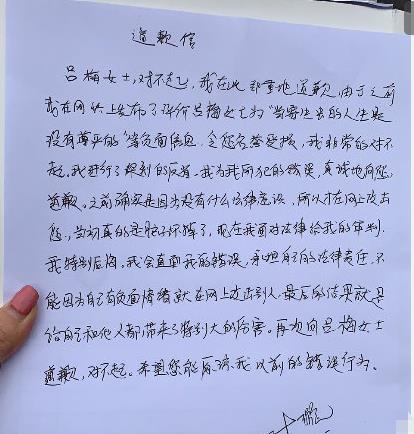 道歉信
吕梅女士,对不起,我在此郑重地道歉,由于之前
我在网络上发布了评价吕梅女士为“当寄生虫的人生是
没有尊严的”等负面信息,令您名誉受损,我非常的对不
起。我进行了深刻的反省,我为我所犯的错误,真诚地向您
道歉。之前确实是因为没有什么法律意识,所以才在网上攻击
您,当初真的是脑子坏掉了,现在我面对法律给我的审判,
我特别后悔,我会直面我的错误,承担自己的法律责任,不
能因为自己有负面情绪就在网上攻击别人,最后的结果就是
给自己和他人都带来了特别大的伤害。再次向吕梅女士
道歉,对不起。希望您能原谅我以前的错误行为。